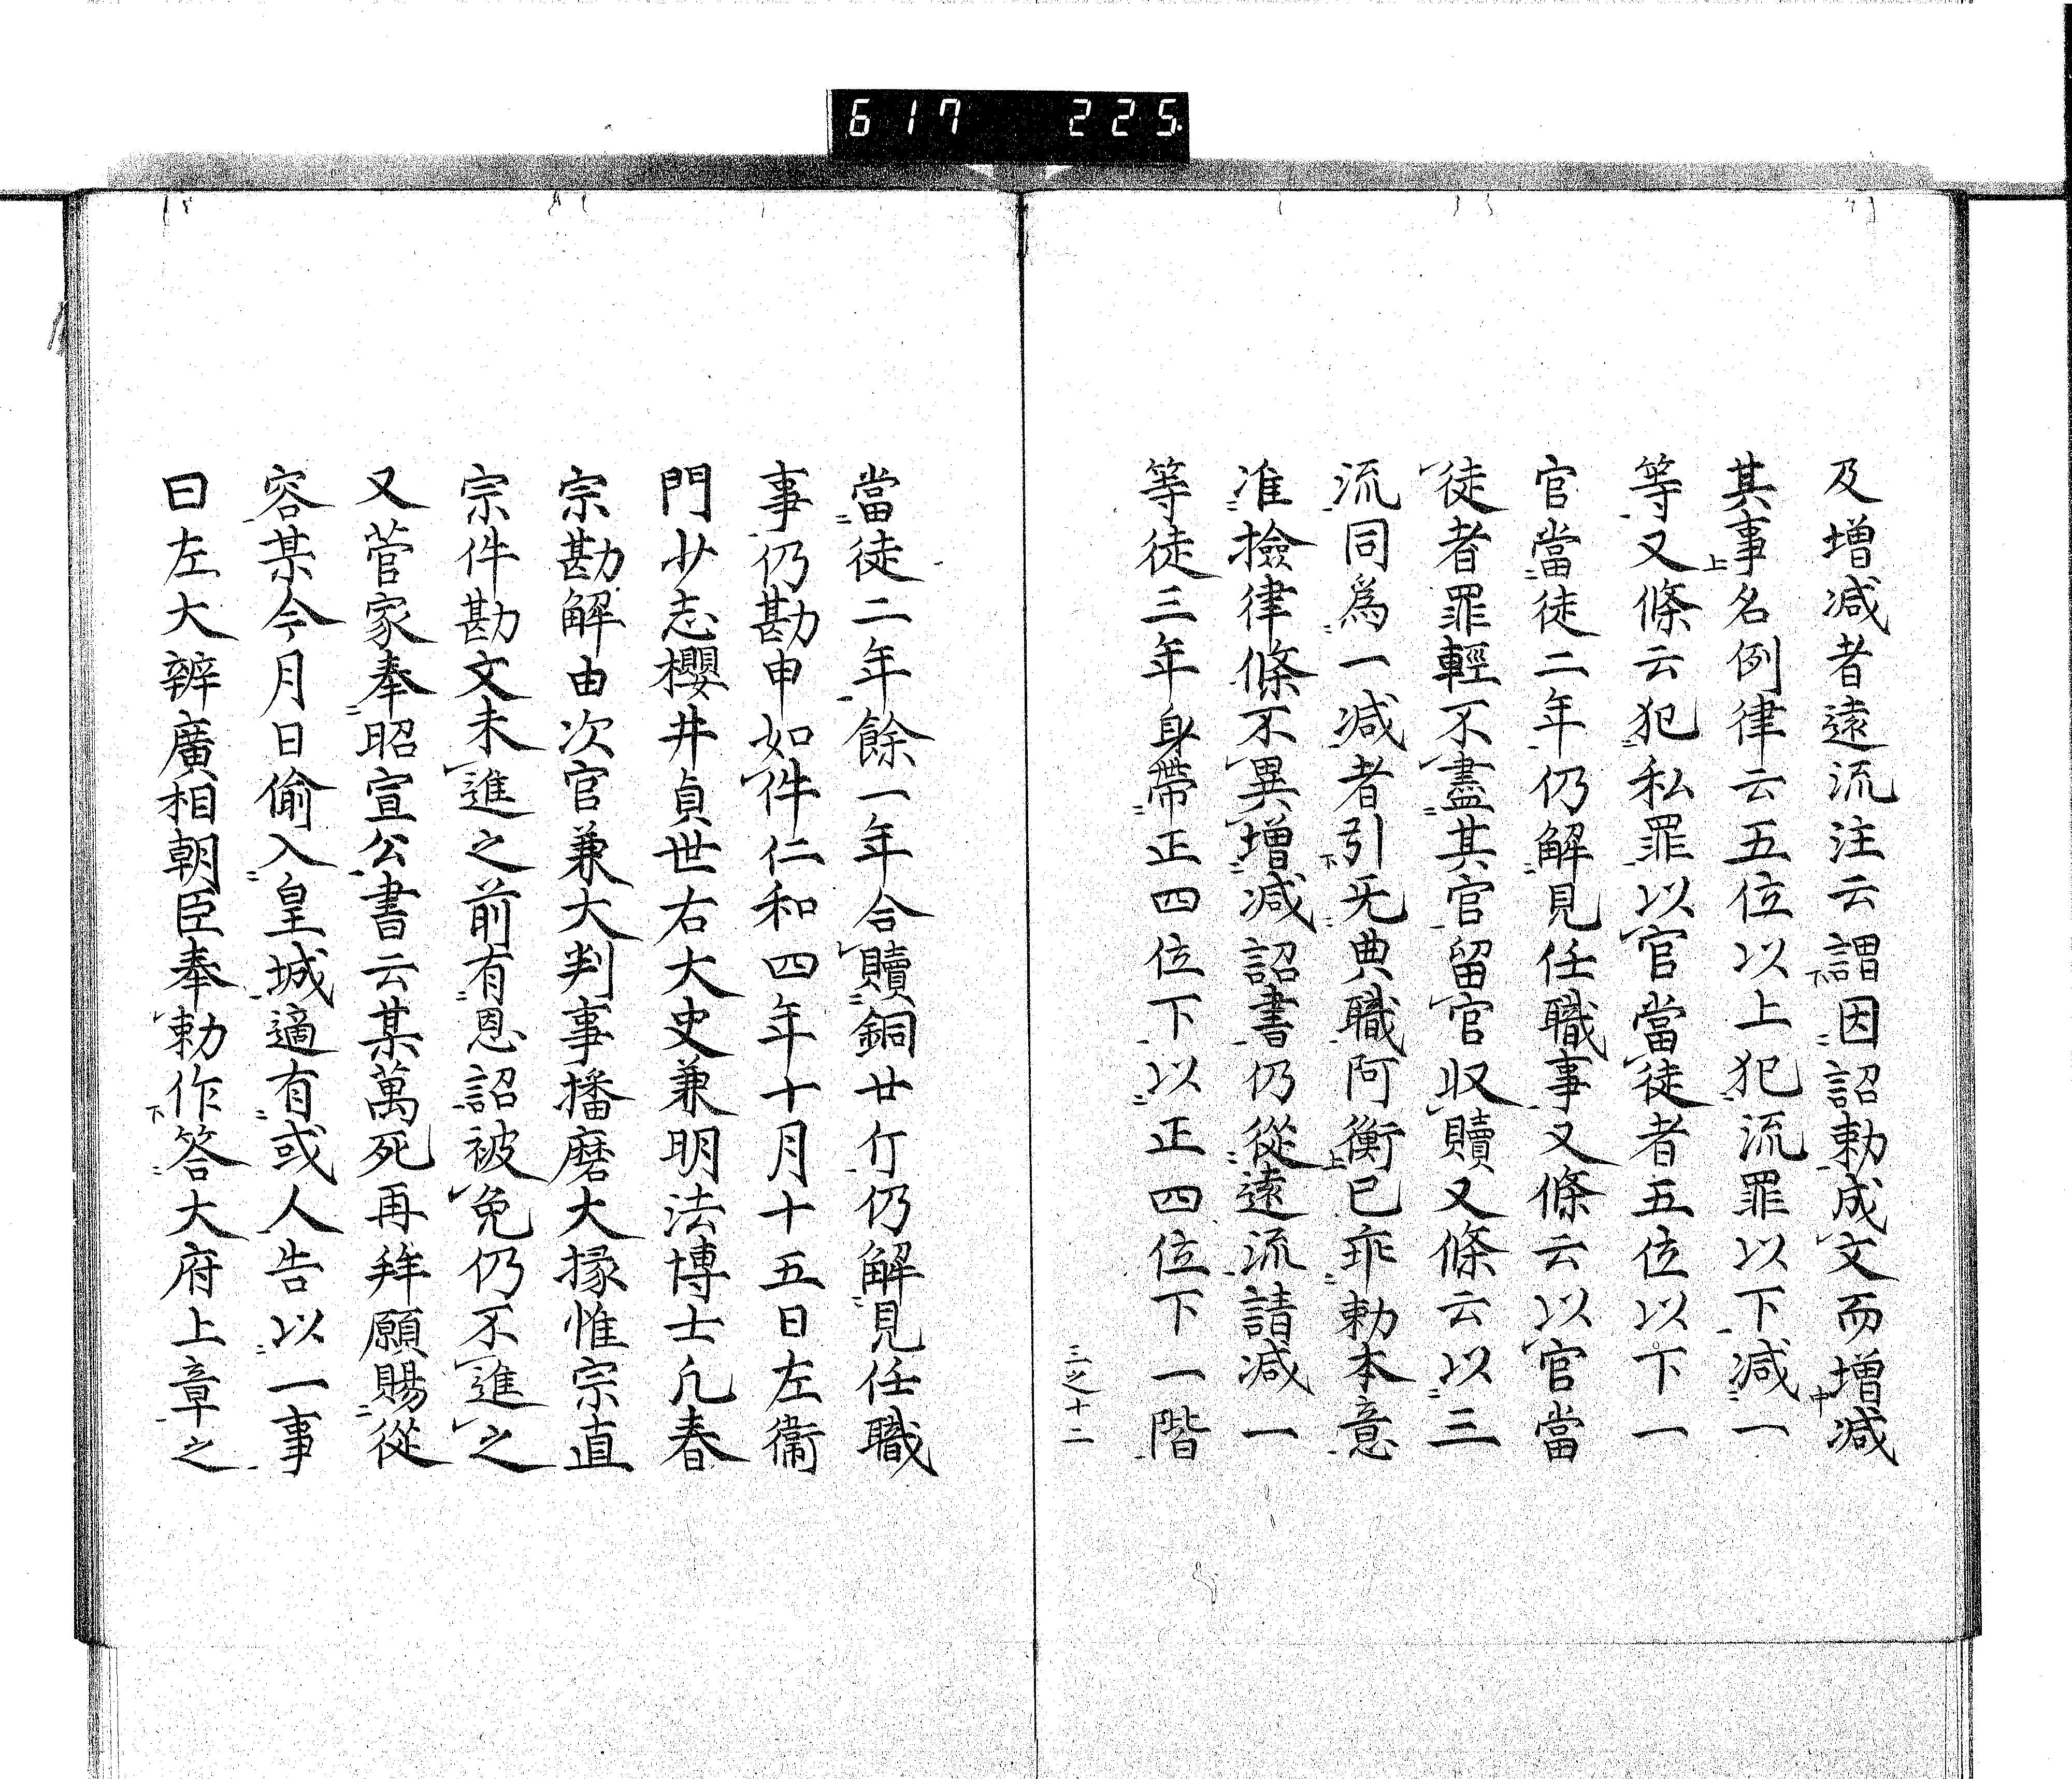 617 225
及増减者遠流注云謂因詔勅成文而増减
其事名例律云五位以上犯流罪以下减一
等又條云犯私罪以官當徒者五位以下一
官當徒二年仍解見任職事又條云以官當
徒者罪輕不盡其官留官収贖又條云以三
流同爲一减者引旡典職阿衡已乖勅本意
准撿律條不異増减詔書仍從遠流請减一
等徒三年身帶正四位下以正四位下一階
三之十二
當徒二年餘一年合贖銅廿斤仍解見任職
事仍勘申如件仁和四年十月十五日左衞
門少志櫻井貞世右大史兼明法博士凡春
宗勘解由次官兼大判事播磨大掾惟宗直
宗件勘文未進之前有恩詔被免仍不進之
又菅家奉昭宣公書云某萬死再拜願賜從
容某今月日偷入皇城適有或人告以一事
曰左大辨廣相朝臣奉勅作答大府上章之